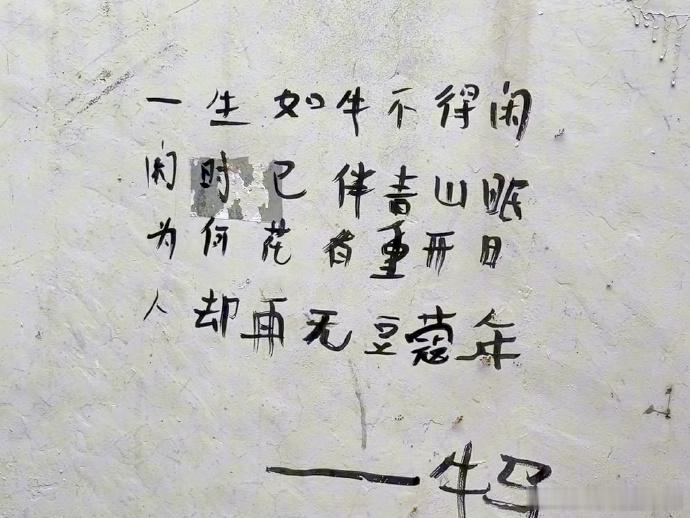 一生如牛不得闲
闲时已伴青山眠
为何花有重开日
人却再无豆蔻年
——牛马